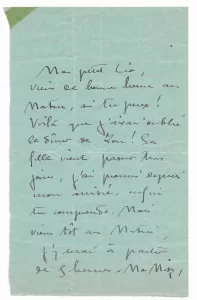 Mon petit Léo,
viens de bonne heure au
Matin, si tu peux !
Voilà que j'avais oublié
le dîner de Lou ! Sa
fille veut passer
j'ai promis depuis
mon arrivée, enfin
tu comprends. Mais
viens tôt au Matin,
j'y serai à partir
de 5 heures.